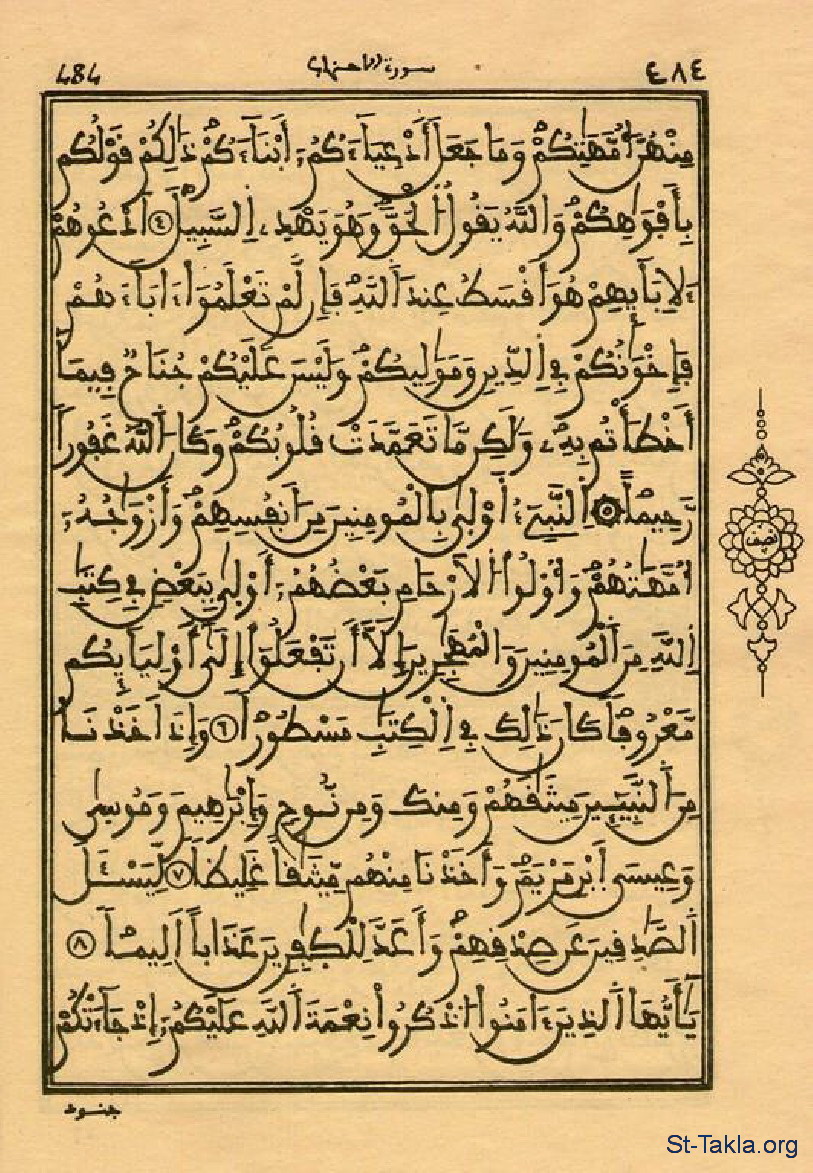 484 سورة الاحزاب ٤٨٤
مِنْهُنَّ أُمَّهَٰتِكُمْ وَمَا جَعَلَ أَدْعِيَآءَكُمُۥٓ أَبْنَآءَكُمْ ذَٰلِكُمْ قَوْلُكُم
بِأَفْوَٰهِكُمْ وَاللَّهُ يَقُولُ الْحَقَّ وَهُوَ يَهْدِے اِلسَّبِيلَ ٤ اَدْعُوهُمْ
ءَلِابَآئِهِمْ هُوَ أَقْسَطُ عِندَ اَللَّهِ فَإِن لَّمْ تَعْلَمُوٓاْ ءَابَآءَهُمْ
فَإِخْوَٰنُكُمْ فِے اِلدِّينِ وَمَوَٰلِيكُمْ وَلَيْسَ عَلَيْكُمْ جُنَاحٌ فِيمَآ
أَخْطَأْتُم بِهِۦ وَلَٰكِن مَّا تَعَمَّدَتْ قُلُوبُكُمْ وَكَانَ اَللَّهُ غَفُوراً
رَّحِيماً ٥ اِلنَّبِےٓءُ أَوْلَىٰ بِالْمُومِنِينَ مِنَ اَنفُسِهِمْ وَأَزْوَٰجُهُۥٓ
أُمَّهَٰتُهُمْ وَأُوْلُواْ اُلَارْحَامِ بَعْضُهُمُۥٓ أَوْلَىٰ بِبَعْضٍ فِے كِتَٰبِ
اِللَّهِ مِنَ اَلْمُومِنِينَ وَالْمُهَٰجِرِينَ إِلَّآ أَن تَفْعَلُوٓاْ إِلَىٰٓ أَوْلِيَآئِكُم
مَّعْرُوفاً كَانَ ذَٰلِكَ فِے اِلْكِتَٰبِ مَسْطُوراً ٦ وَإِذَ اَخَذْنَا
مِنَ اَلنَّبِيٓـِٕينَ مِيثَٰقَهُمْ وَمِنكَ وَمِن نُّوحٍ وَإِبْرَٰهِيمَ وَمُوسَىٰ
وَعِيسَى اَبْنِ مَرْيَمَ وَأَخَذْنَا مِنْهُم مِّيثَٰقاً غَلِيظاً ٧ لِّيَسْـَٔلَ
اَلصَّٰدِقِينَ عَن صِدْقِهِمْ وَأَعَدَّ لِلْكٰفِرِينَ عَذَاباً اَلِيماً ٨
يَٰٓأَيُّهَا اَلذِينَ ءَامَنُواْ اُذْكُرُواْ نِعْمَةَ اَللَّهِ عَلَيْكُمُۥٓ إِذْ جَآءَتْكُمْ
نصف
جنود
St-Takla.org